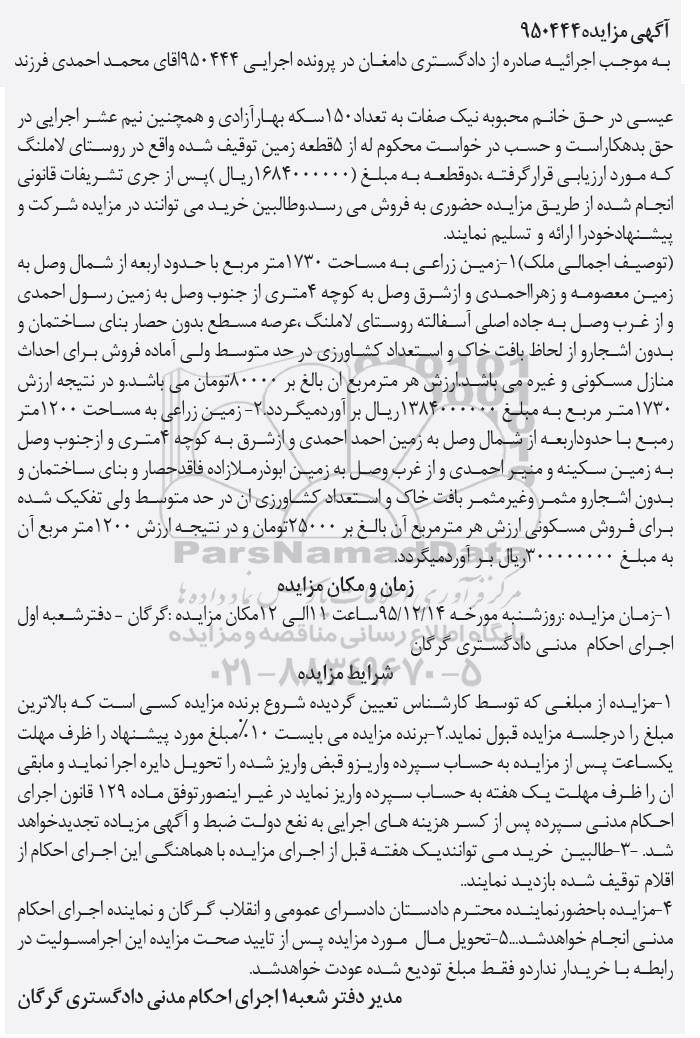 آگهی مزایده۹۵۰۴۴۴
به موجب اجرائیه صادره از دادگستری دامغان در پرونده اجرایی ۹۵۰۴۴۴اقای محمد احمدی فرزند
عیسی در حق خانم محبوبه نیک صفات به تعداد۱۵۰سکه بهارآزادی و همچنین نیم عشر اجرایی در
حق بدهکاراست و حسب در خواست محکوم له از ۵قطعه زمین توقیف شده واقع در روستای لاملنگ
که مورد ارزیابی قرارگرفته ،دوقطعه به مبلغ (۱۶۸۴۰۰۰۰۰۰ریال )پس از جری تشریفات قانونی
انجام شده از طریق مزایده حضوری به فروش می رسد.وطالبین خرید می توانند در مزایده شرکت و
پیشنهادخودرا ارائه و تسلیم نمایند.
(توصیف اجمالی ملک)۱-زمین زراعی به مساحت ۱۷۳۰متر مربع با حدود اربعه از شمال وصل به
زمین معصومه و زهرااحمدی و ازشرق وصل به کوچه ۴متری از جنوب وصل به زمین رسول احمدی
و از غرب وصل به جاده اصلی آسفالته روستای لاملنگ ،عرصه مسطع بدون حصار بنای ساختمان و
بدون اشجارو از لحاظ بافت خاک و استعداد کشاورزی در حد متوسط ولی آماده فروش برای احداث
منازل مسکونی و غیره می باشد.ارزش هر مترمربع ان بالغ بر ۸۰۰۰۰تومان می باشد.و در نتیجه ارزش
۱۷۳۰متر مربع به مبلغ ۱۳۸۴۰۰۰۰۰۰ریال بر آوردمیگردد.۲- زمین زراعی به مساحت ۱۲۰۰متر
رمبع با حدوداربعه از شمال وصل به زمین احمد احمدی و ازشرق به کوچه ۴متری و ازجنوب وصل
به زمین سکینه و منیر احمدی و از غرب وصل به زمین ابوذرملازاده فاقدحصار و بنای ساختمان و
بدون اشجارو مثمر وغیرمثمر بافت خاک و استعداد کشاورزی ان در حد متوسط ولی تفکیک شده
برای فروش مسکونی ارزش هر مترمربع آن بالغ بر ۲۵۰۰۰تومان و در نتیجه ارزش ۱۲۰۰متر مربع آن
به مبلغ ۳۰۰۰۰۰۰۰۰ریال بر آوردمیگردد.
زمان و مکان مزایده
۱-زمان مزایده :روزشنبه مورخه ۹۵/۱۲/۱۴ساعت ۱۱الی ۱۲مکان مزایده :گرگان - دفترشعبه اول
اجرای احکام مدنی دادگستری گرگان
شرایط مزایده
۱-مزایده از مبلغی که توسط کارشناس تعیین گردیده شروع برنده مزایده کسی است که بالاترین
مبلغ را درجلسه مزایده قبول نماید.۲-برنده مزایده می بایست ۱۰٪مبلغ مورد پیشنهاد را ظرف مهلت
یکساعت پس از مزایده به حساب سپرده واریزو قبض واریز شده را تحویل دایره اجرا نماید و مابقی
ان را ظرف مهلت یک هفته به حساب سپرده واریز نماید در غیر اینصورتوفق ماده ۱۲۹ قانون اجرای
احکام مدنی سپرده پس از کسر هزینه های اجرایی به نفع دولت ضبط و آگهی مزیاده تجدیدخواهد
شد. -۳-طالبین خرید می توانندیک هفته قبل از اجرای مزایده با هماهنگی این اجرای احکام از
اقلام توقیف شده بازدید نمایند..
۴-مزایده باحضورنماینده محترم دادستان دادسرای عمومی و انقلاب گرگان و نماینده اجرای احکام
مدنی انجام خواهدشد...۵-تحویل مال مورد مزایده پس از تایید صحت مزایده این اجرامسولیت در
رابطه با خریدار نداردو فقط مبلغ تودیع شده عودت خواهدشد.
مدیر دفتر شعبه۱ اجرای احکام مدنی دادگستری گرگان
ParsNamadData
پایگاه اطلاع رسانی مناقصه و مزایده
۰۲۱-۸۸۳۴۹۶۷۰-۵